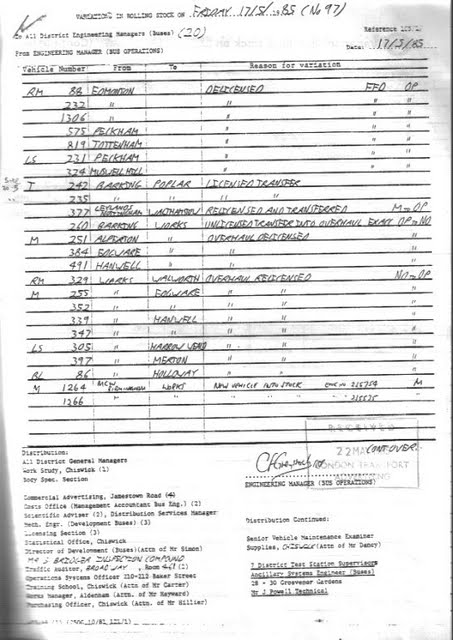 VARIATIONS IN ROLLING STOCK ON FRIDAY 17/5/1985 (No 97)
To All District Engineering Managers (Buses) (20)
Reference
From ENGINEERING MANAGER (BUS OPERATIONS)
Date: 17/5/85
Vehicle Number From To Reason for variation
RM 88 EDMONTON DELICENSED FFD OP
232 " " " "
1306 " " " "
575 PECKHAM " " "
819 TOTTENHAM " " "
LS 231 PECKHAM " " "
324 MUSWELL HILL " " "
T 242 BARKING POPLAR LICENSED TRANSFER
235 " " " "
377 LEYLANDS NOTTINGHAM WALTHAMSTOW RELICENSED AND TRANSFERRED M TO OP
260 BARKING WORKS UNLICENSED TRANSFER INTO OVERHAUL EXACT OP TO NO
M 251 ALPERTON " OVERHAUL DELICENSED "
384 EDGWARE " " " "
491 HANWELL " " " "
RM 329 WORKS WALWORTH OVERHAUL RELICENSED NO TO OP
M 255 " EDGWARE " " "
352 " " " " "
339 " HANWELL " " "
347 " " " " "
LS 305 " HARROW WEALD " " "
397 " MERTON " " "
RL 86 " HOLLOWAY " " "
M 1264 MCW BIRMINGHAM WORKS NEW VEHICLE INTO STOCK M
1266 " " " " "
RECEIVED
22 MAY
CONT OVER.
LONDON TRANSPORT
ENGINEERING MANAGER (BUS OPERATIONS)
Distribution:
All District General Managers
Work Study, Chiswick (1)
Body Spec. Section
Commercial Advertising, Jamestown Road (4)
Costs Office (Management Accountant Bus Eng.) (2)
Scientific Adviser (2), Distribution Services Manager
Mech. Engr. (Development Buses) (3)
Licensing Section (3)
Statistical Office, Chiswick
Director of Development (Buses)(Attn of Mr Simon)
INSPECTION COMPOUND
Traffic Auditor, BROADWAY, Room 461 (1)
Operations Systems Officer 210-212 Baker Street
Training School, Chiswick (Attn of Mr Carter)
Works Manager, Aldenham (Attn. of Mr Hayward)
Purchasing Officer, Chiswick (Attn of Mr Hillier)
Distribution Continued:
Senior Vehicle Maintenance Examiner
Supplies, CHISWICK (Attn of Mr Dancy)
7 District Test Station Supervisors
Ancillary Systems Engineer (Buses)
28 - 30 Grosvenor Gardens
Mr J Powell Technical